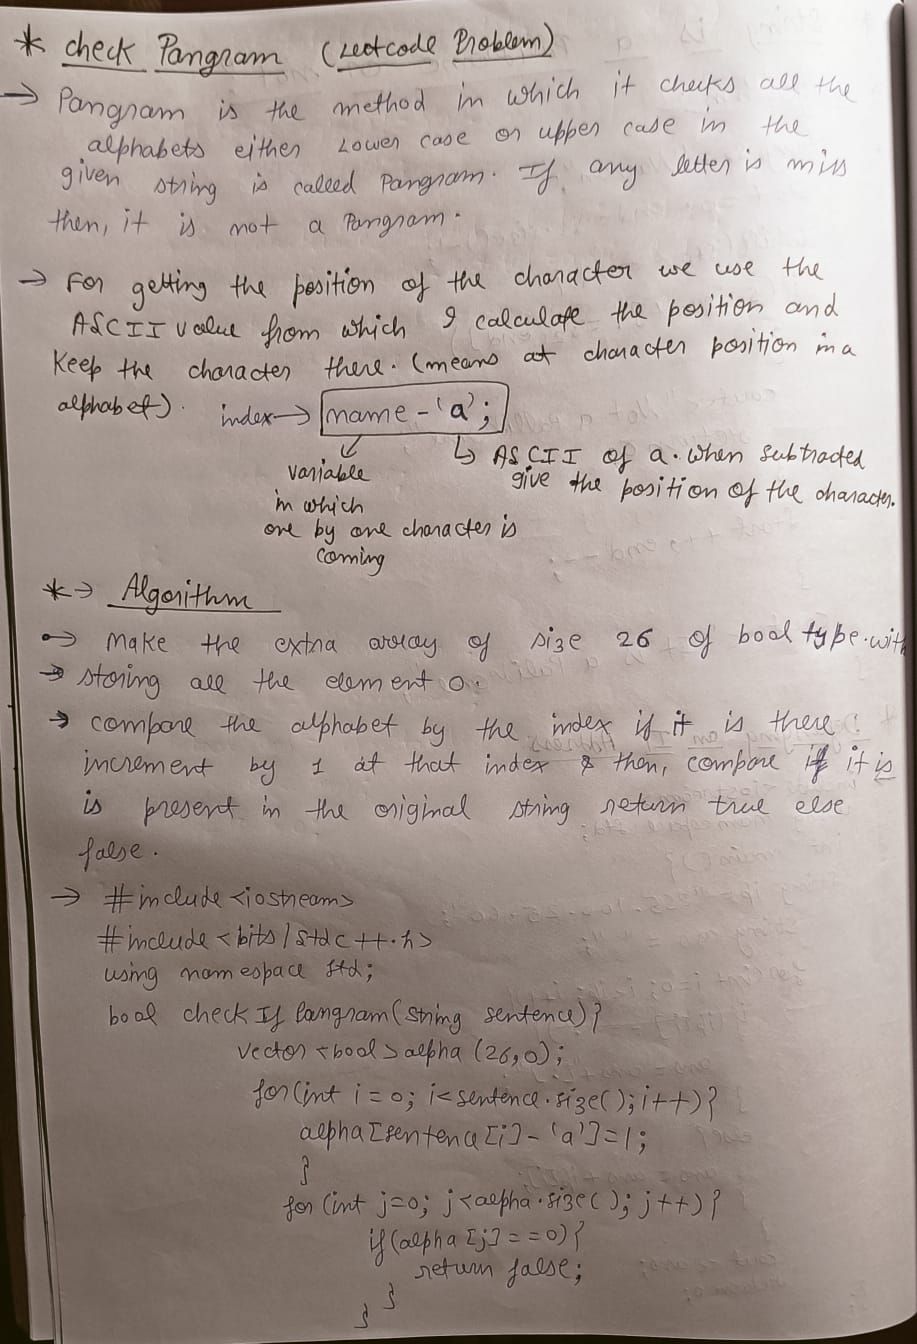 * check Pangram (Leetcode Problem)
→ Pangram is the method in which it checks all the
alphabets either Lower case or upper case in the
given string is called Pangram. If any letter is miss
then, it is not a Pangram.
→ For getting the position of the character we use the
ASCII value from which I calculate the position and
Keep the character there. (means at character position in a
alphabet).
index→ name - 'a';
↳ ASCII of a. when subtracted
give the position of the character.
variable
in which
one by one character is
coming
*→ Algorithm
→ Make the extra array of size 26 of bool type. with
→ storing all the element 0.
→ compare the alphabet by the index if it is there
increment by 1 at that index & then, compare if it is
is present in the original string return true else
false.
→ #include <iostream>
#include <bits/stdc++.h>
using namespace std;
bool checkIfPangram(string sentence){
vector <bool> alpha (26,0);
for(int i=0; i<sentence.size(); i++){
alpha[sentence[i]-'a']=1;
}
for (int j=0; j<alpha.size(); j++){
if(alpha[j]==0){
return false;
}
}